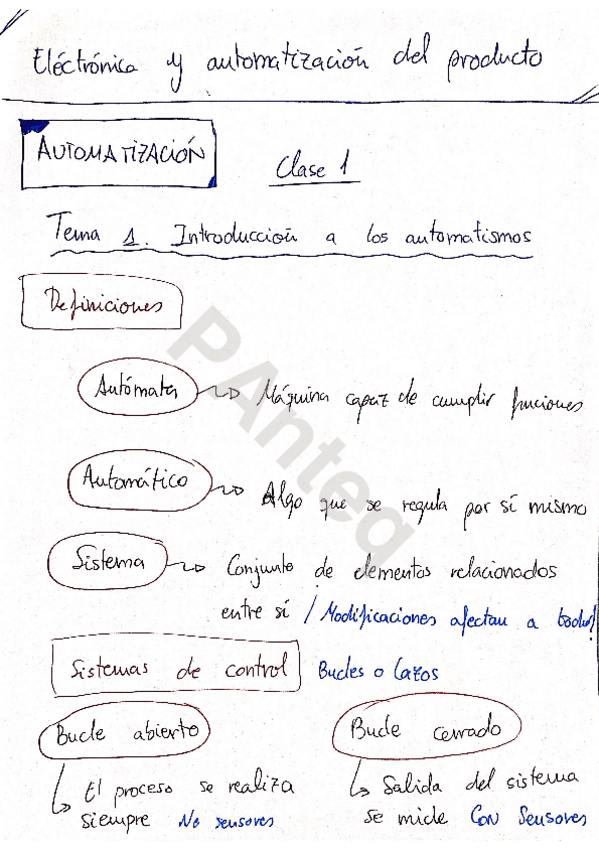 Eléctrónica y automatización del producto
AUTOMATIZACIÓN
Clase 1
Tema 1. Introducción a los automatismos
Definiciones
Autómata → Máquina capaz de cumplir funciones
Automático → Algo que se regula por sí mismo
Sistema → Conjunto de elementos relacionados
entre sí / Modificaciones afectan a todos!
Sistemas de control Bucles o lazos
Bucle abierto
Bucle cerrado
El proceso se realiza
siempre No sensores
Salida del sistema
se mide Con Sensores
PAnteq